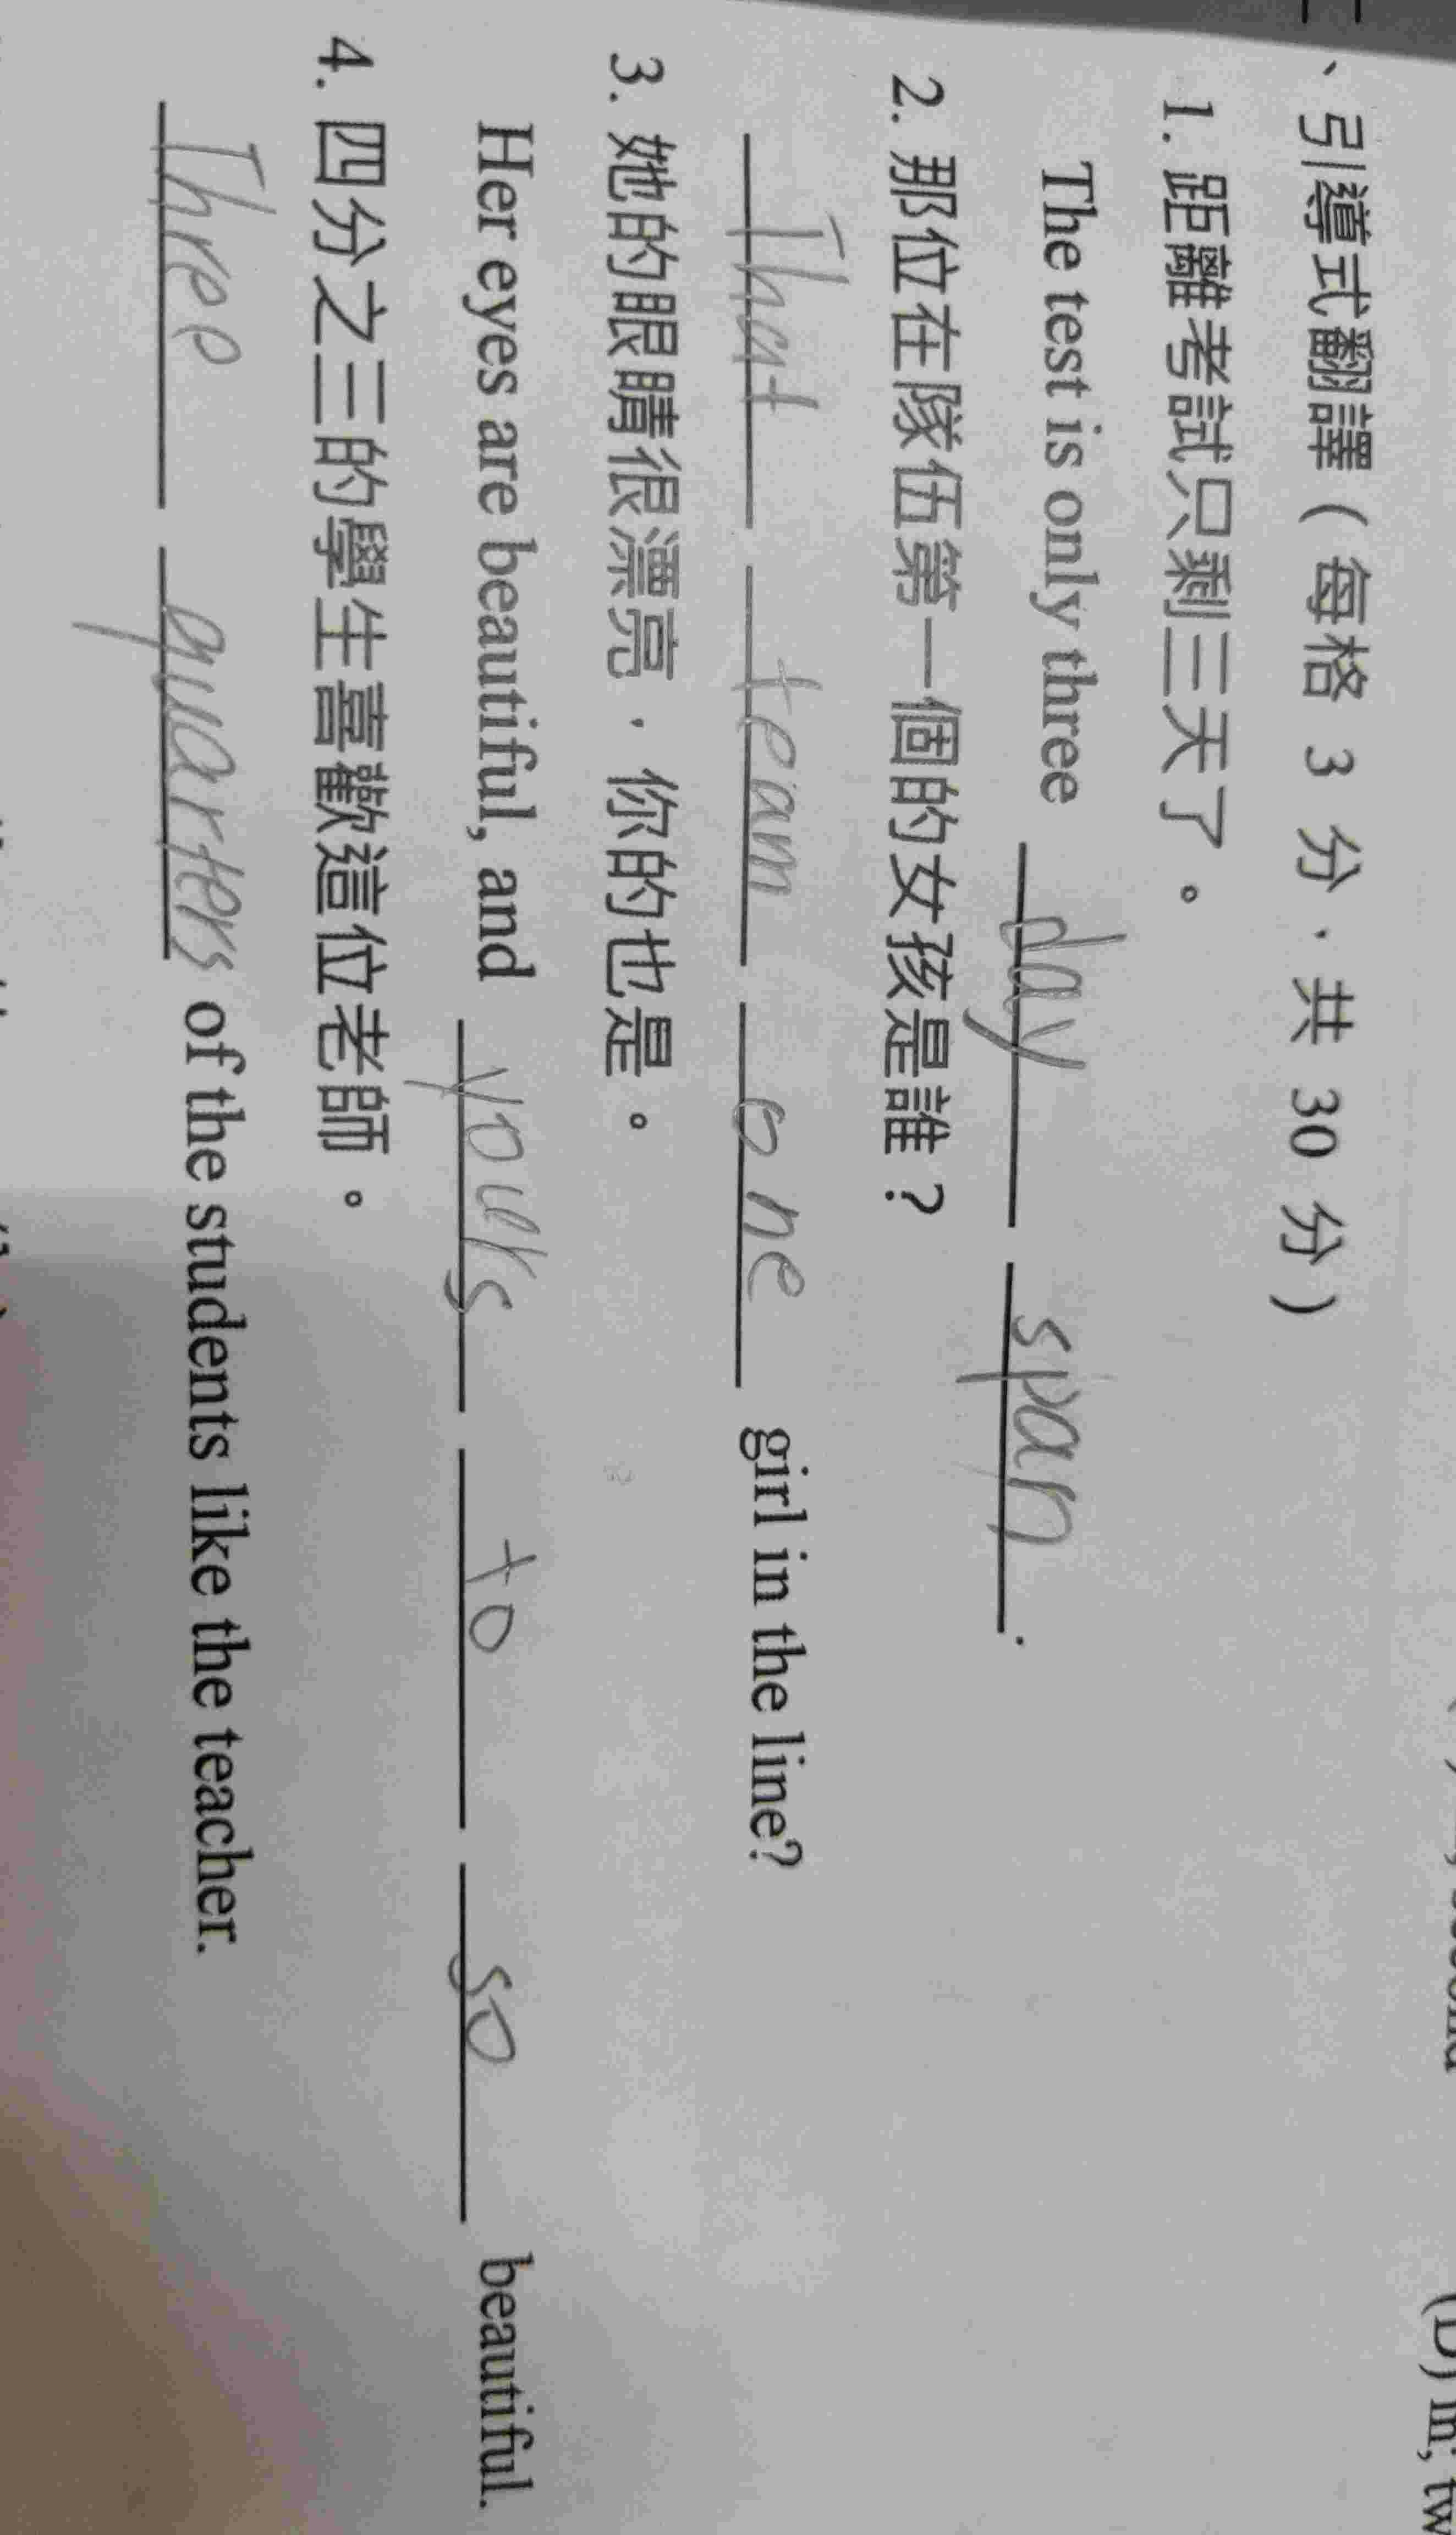 、引導式翻譯（每格 3 分，共 30 分）
1. 距離考試只剩三天了。
The test is only three day span.
2. 那位在隊伍第一個的女孩是誰？
That team one girl in the line?
3. 她的眼睛很漂亮，你的也是。
Her eyes are beautiful, and yours to so beautiful.
4. 四分之三的學生喜歡這位老師。
Three quarters of the students like the teacher.
(D) in; tw